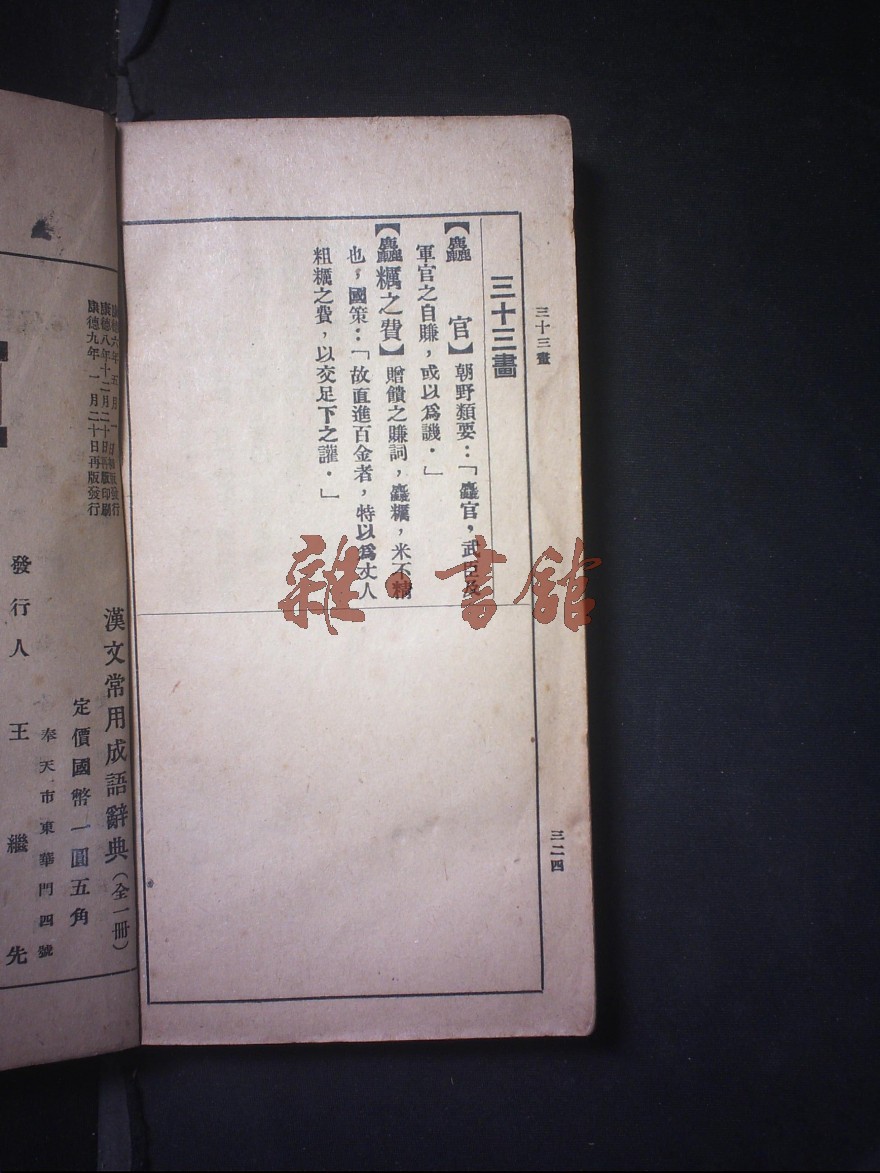 三十三畫
三二四
三十三畫
【麤官】朝野類要：「麤官，武臣及
軍官之自賺，或以爲譏．」
【麤糲之費】贈饋之賺詞，麤糲，米不精
也，國策：「故直進百金者，特以爲丈人
粗糲之費，以交足下之讙．」
雜·書館
漢文常用成語辭典（全一冊）
定價國幣一圓五角
康德八年十二月二十日再版印刷
康德九年一月二十日再版發行
奉天市東華門四號
發行人王繼先